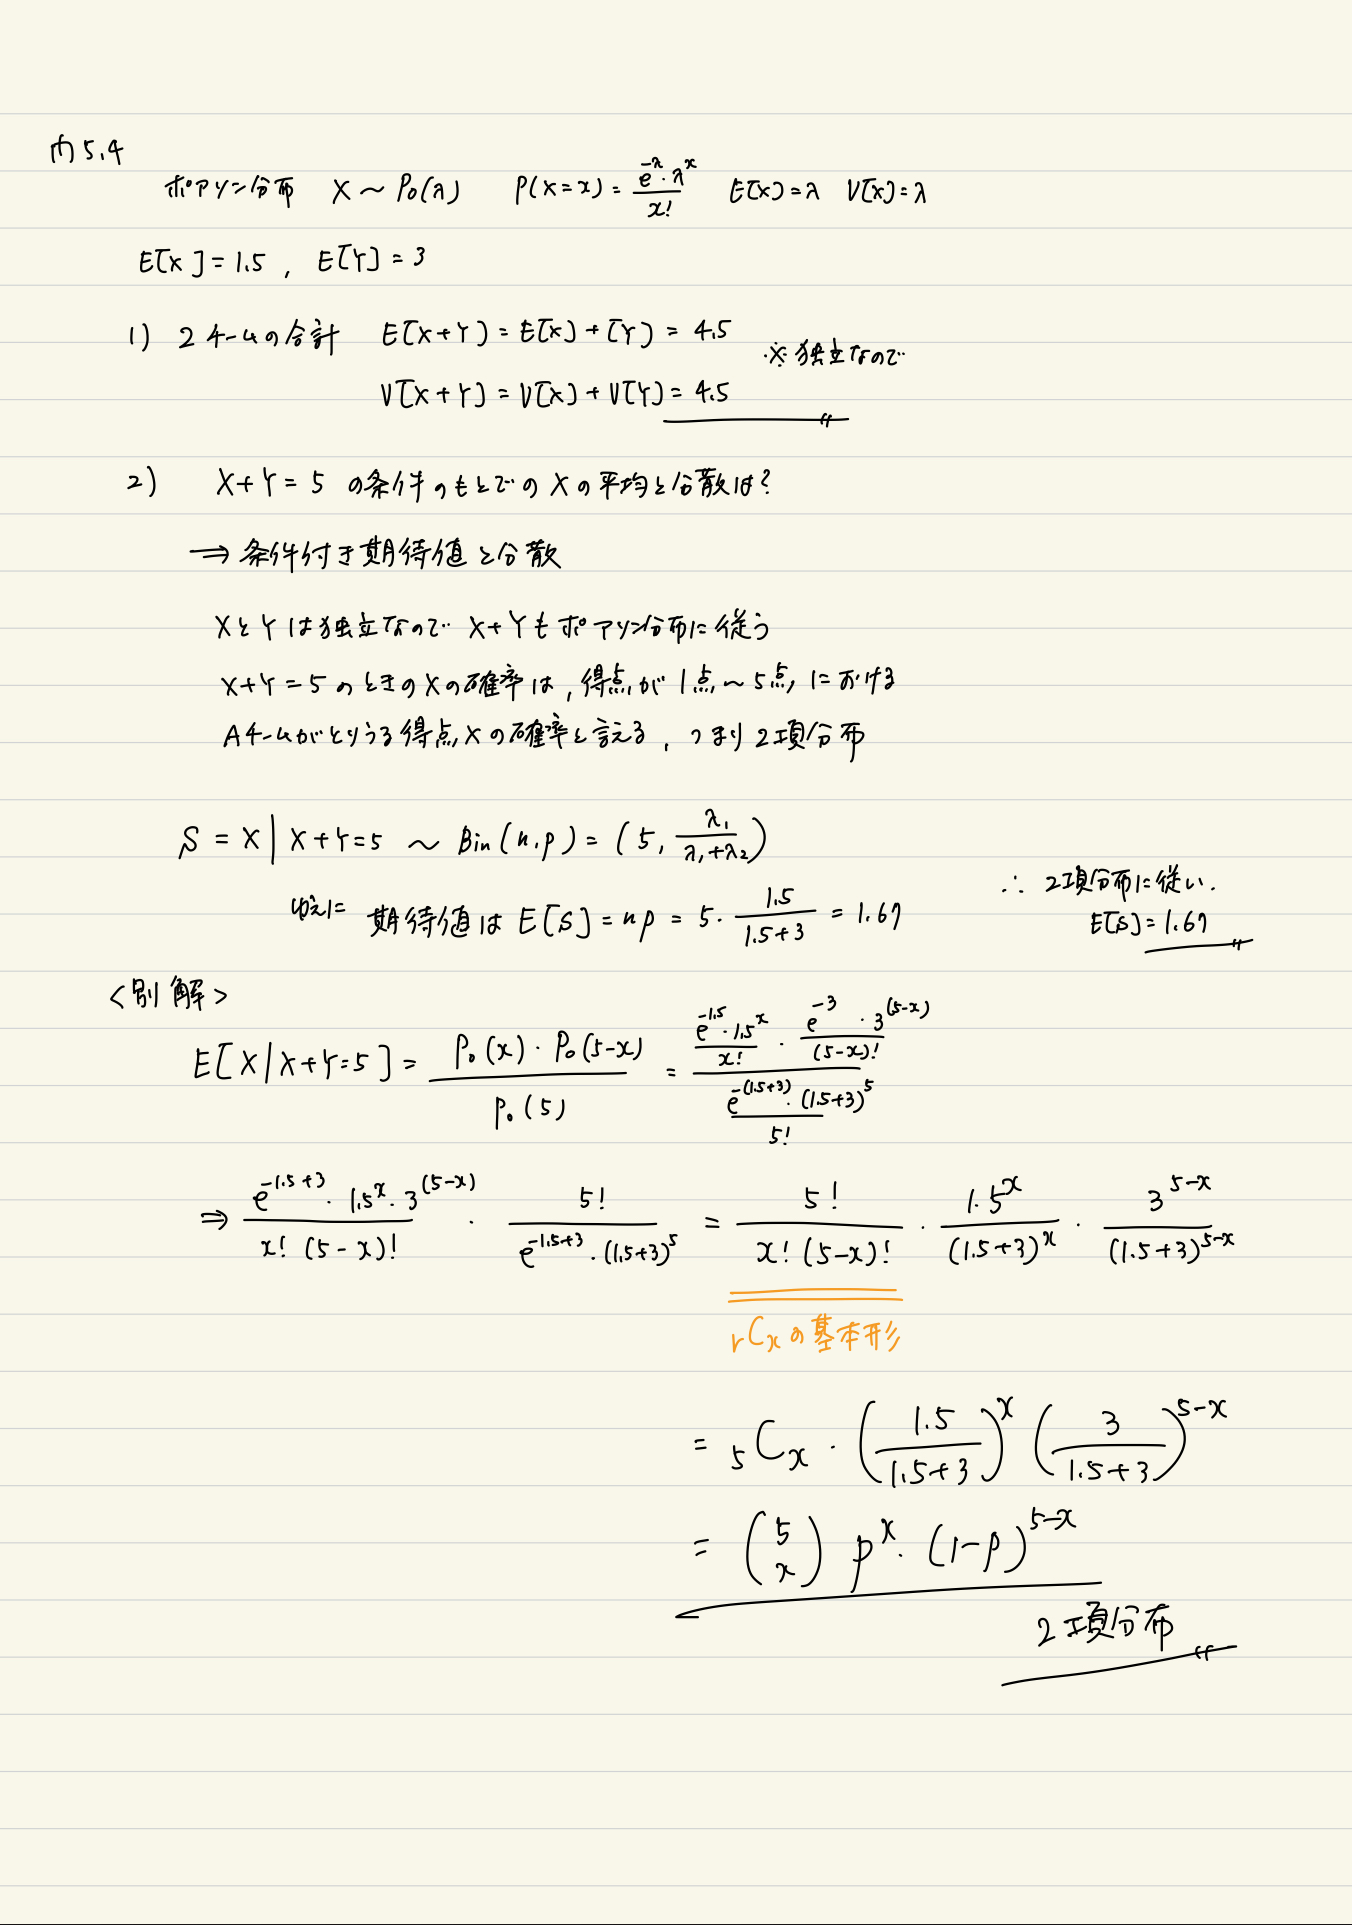 内5.4
ポアソン分布 X ~ Po(λ) P(X=x) = e^{-λ}・λ^x / x! E[X] = λ V[X] = λ
E[X] = 1.5 , E[Y] = 3
1) 2チームの合計 E[X+Y] = E[X] + [Y] = 4.5
※独立なので
V[X+Y] = V[X] + V[Y] = 4.5
2) X+Y = 5 の条件のもとでの Xの平均と分散は?
⇒ 条件付き期待値と分散
XとYは独立なので X+Yもポアソン分布に従う
X+Y = 5 のときのXの確率は, 得点が1点~5点における
Aチームがとりうる得点Xの確率と言える, つまり2項分布
S = X | X+Y=5 ~ Bin(n,p) = (5, λ₁/(λ₁+λ₂))
ゆえに 期待値は E[S] = np = 5・1.5/(1.5+3) = 1.67
∴ 2項分布に従い.
E[S] = 1.67
<別解>
E[X|X+Y=5] = Po(x)・Po(5-x) / Po(5) = (e^{-1.5}・1.5^x / x! ・ e^{-3}・3^{(5-x)} / (5-x)!) / (e^{-(1.5+3)}・(1.5+3)^5 / 5!)
⇒ e^{-1.5+3}・1.5^x・3^{(5-x)} / x!(5-x)! ・ 5! / e^{-1.5+3}・(1.5+3)^5 = 5! / x!(5-x)! ・ 1.5^x / (1.5+3)^x ・ 3^{5-x} / (1.5+3)^{5-x}
rCxの基本形
= ₅Cx・(1.5/(1.5+3))^x (3/(1.5+3))^{5-x}
= (5 x) p^x・(1-p)^{5-x}
2項分布